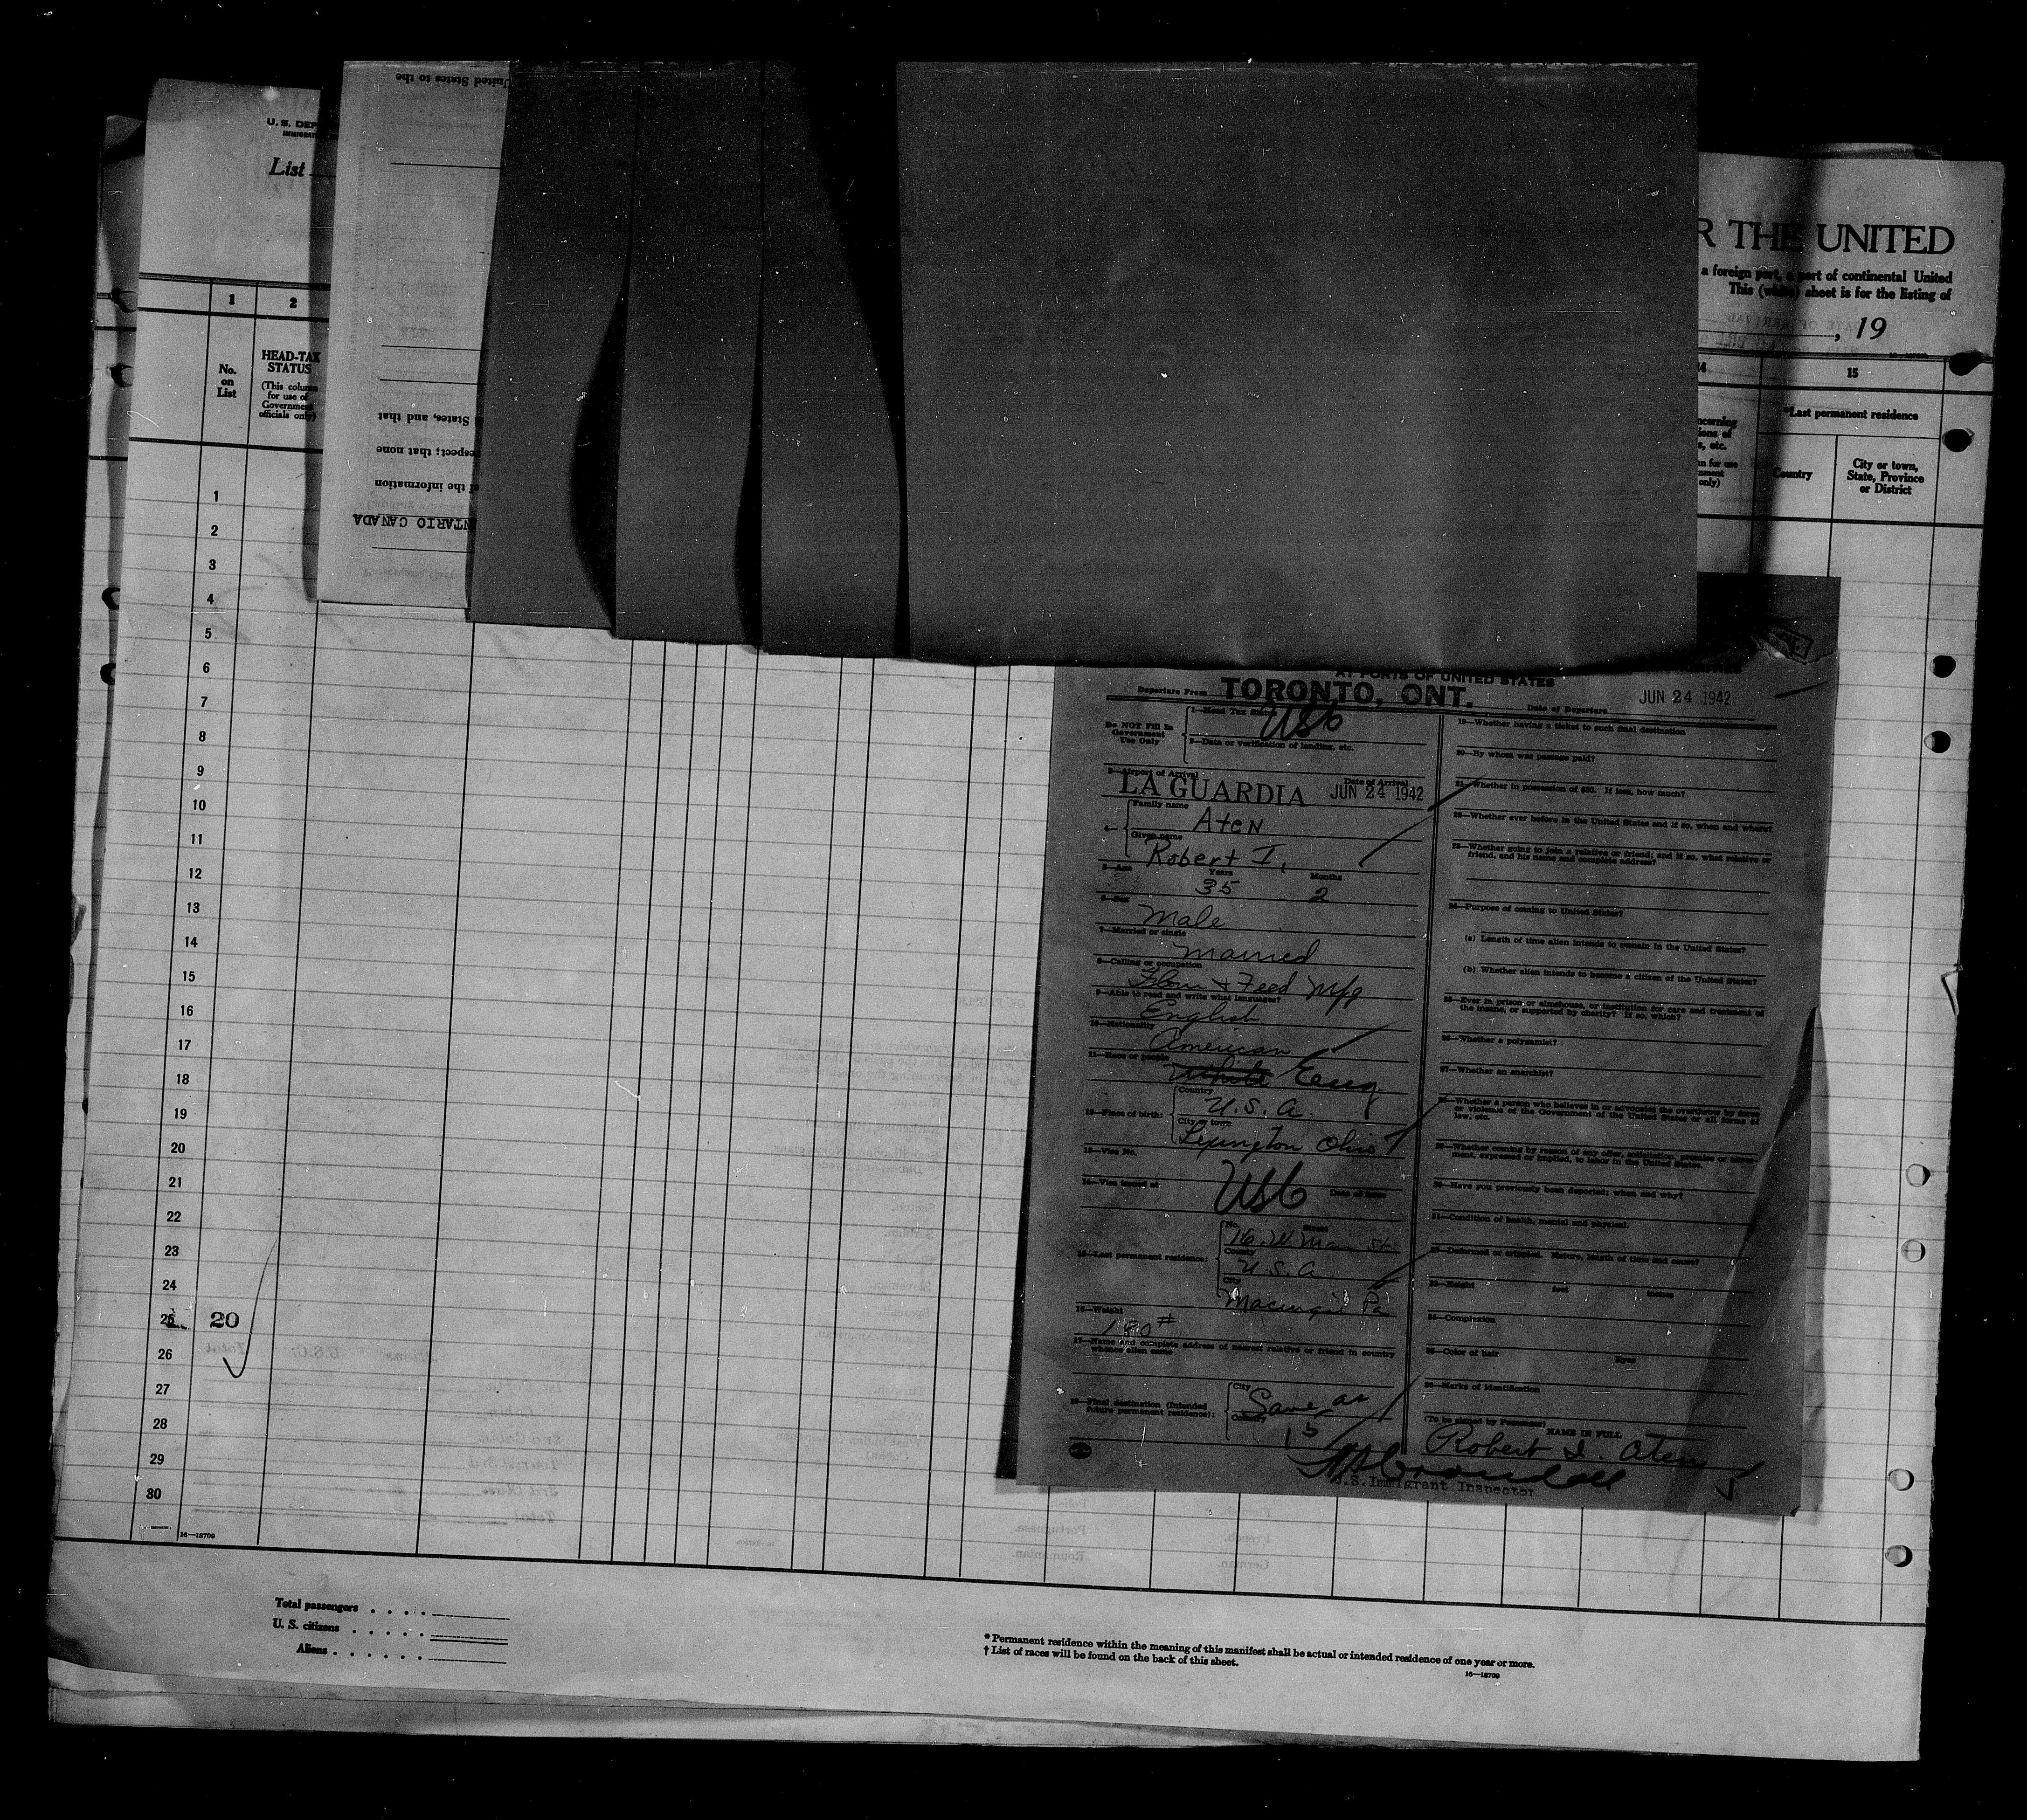 U. S. DEP
IMMIGRAT
List
United States to the
d States, and that
espect; that none
of the information
NTARIO CANADA
R THE UNITED
a foreign port, a port of continental United
This (white) sheet is for the listing of
, 19
1
2
14
15
No.
on
List
HEAD-TAX
STATUS
(This column
for use of
Government
officials only)
ncerning
ions of
s, etc.
n for use
nment
only)
*Last permanent residence
Country
City or town,
State, Province
or District
1
2
3
4
5
6
7
8
9
10
11
12
13
14
15
16
17
18
19
20
21
22
23
24
25
20
26
27
28
29
30
16—18709
AT PORTS OF UNITED STATES
Departure From TORONTO, ONT. Date of Departure JUN 24 1942
Do NOT Fill In
Government
Use Only
1—Head Tax Status
USC
2—Data or verification of landing, etc.
3—Airport of Arrival Date of Arrival
LA GUARDIA JUN 24 1942
4—
Family name
Aten
Given name
Robert I.
5—Age Years Months
35 2
6—Sex
Male
7—Married or single
Married
8—Calling or occupation
Flour + Feed Mfg
9—Able to read and write what languages?
English
10—Nationality
American
11—Race or people
White Eng
12—Place of birth:
Country
U.S.A.
City or town
Lexington Ohio
13—Visa No.
14—Visa issued at USC Date of Issue
15—Last permanent residence:
No. Street
16 W Main St
County
U.S.A
City
Macungie Pa
16—Weight
180#
17—Name and complete address of nearest relative or friend in country
whence alien came
18—Final destination (Intended
future permanent residence):
City
Same as
Country
15
19—Whether having a ticket to such final destination
20—By whom was passage paid?
21—Whether in possession of $50. If less, how much?
22—Whether ever before in the United States and if so, when and where?
23—Whether going to join a relative or friend; and if so, what relative or
friend, and his name and complete address?
24—Purpose of coming to United States?
(a) Length of time alien intends to remain in the United States?
(b) Whether alien intends to become a citizen of the United States?
25—Ever in prison or almshouse, or institution for care and treatment of
the insane, or supported by charity? If so, which?
26—Whether a polygamist?
27—Whether an anarchist?
28—Whether a person who believes in or advocates the overthrow by force
or violence of the Government of the United States or all forms of
law, etc.
29—Whether coming by reason of any offer, solicitation, promise or agree-
ment, expressed or implied, to labor in the United States.
30—Have you previously been deported; when and why?
31—Condition of health, mental and physical.
32—Deformed or crippled. Nature, length of time and cause?
33—Height feet inches
34—Complexion
35—Color of hair Eyes
36—Marks of identification
(To be signed by Passenger) NAME IN FULL
Robert I. Aten
U.S. Immigrant Inspector
Total passengers
U. S. citizens
Aliens
* Permanent residence within the meaning of this manifest shall be actual or intended residence of one year or more.
† List of races will be found on the back of this sheet.
16—18709